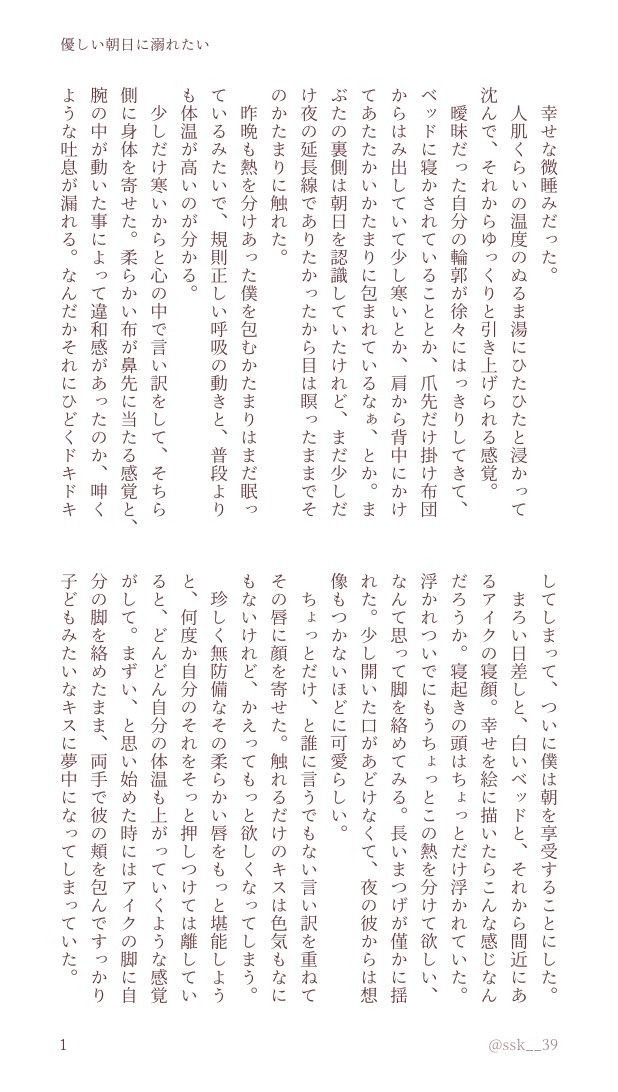 優しい朝日に溺れたい
　幸せな微睡みだった。
　人肌くらいの温度のぬるま湯にひたひたと浸かって
沈んで、それからゆっくりと引き上げられる感覚。
　曖昧だった自分の輪郭が徐々にはっきりしてきて、
ベッドに寝かされていることとか、爪先だけ掛け布団
からはみ出していて少し寒いとか、肩から背中にかけ
てあたたかいかたまりに包まれているなぁ、とか。ま
ぶたの裏側は朝日を認識していたけれど、まだ少しだ
け夜の延長線でありたかったから目は瞑ったままでそ
のかたまりに触れた。
　昨晩も熱を分けあった僕を包むかたまりはまだ眠っ
ているみたいで、規則正しい呼吸の動きと、普段より
も体温が高いのが分かる。
　少しだけ寒いからと心の中で言い訳をして、そちら
側に身体を寄せた。柔らかい布が鼻先に当たる感覚と、
腕の中が動いた事によって違和感があったのか、呻く
ような吐息が漏れる。なんだかそれにひどくドキドキ
してしまって、ついに僕は朝を享受することにした。
　まろい日差しと、白いベッドと、それから間近にあ
るアイクの寝顔。幸せを絵に描いたらこんな感じなん
だろうか。寝起きの頭はちょっとだけ浮かれていた。
浮かれついでにもうちょっとこの熱を分けて欲しい、
なんて思って脚を絡めてみる。長いまつげが僅かに揺
れた。少し開いた口があどけなくて、夜の彼からは想
像もつかないほどに可愛らしい。
　ちょっとだけ、と誰に言うでもない言い訳を重ねて
その唇に顔を寄せた。触れるだけのキスは色気もなに
もないけれど、かえってもっと欲しくなってしまう。
　珍しく無防備なその柔らかい唇をもっと堪能しよう
と、何度か自分のそれをそっと押しつけては離してい
ると、どんどん自分の体温も上がっていくような感覚
がして。まずい、と思い始めた時にはアイクの脚に自
分の脚を絡めたまま、両手で彼の頬を包んですっかり
子どもみたいなキスに夢中になってしまっていた。
1
@ssk__39